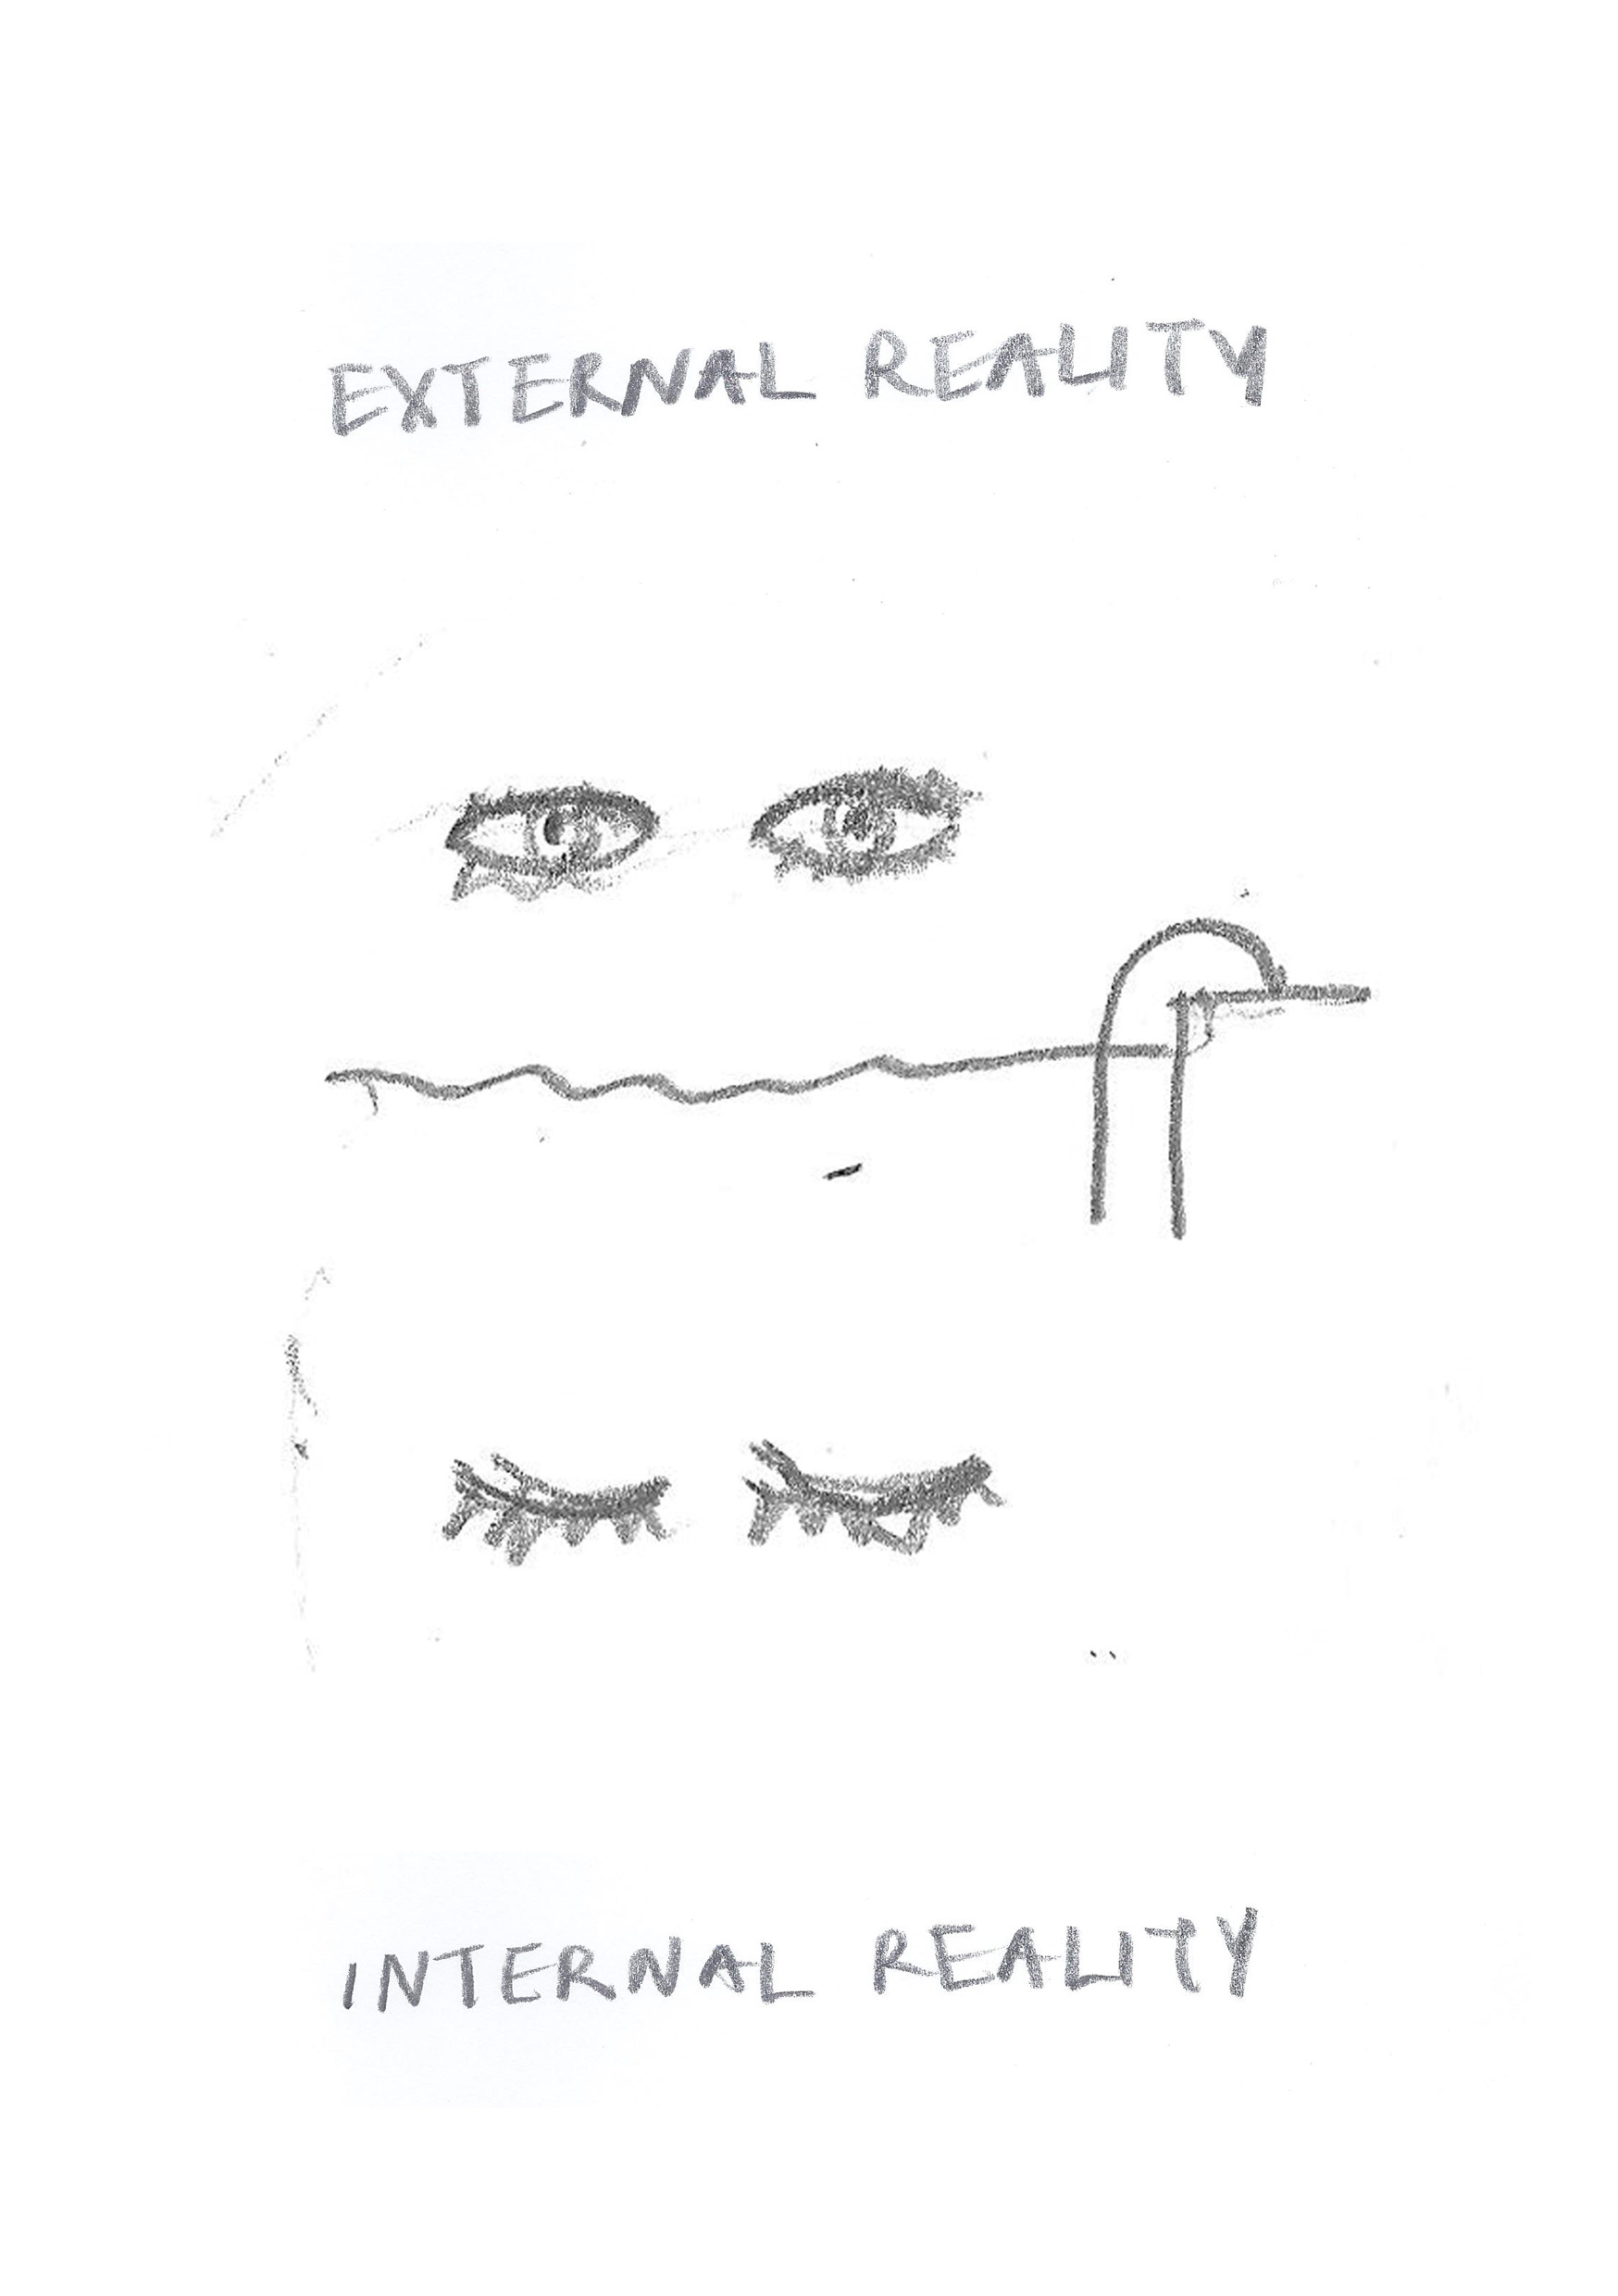 EXTERNAL REALITY
INTERNAL REALITY